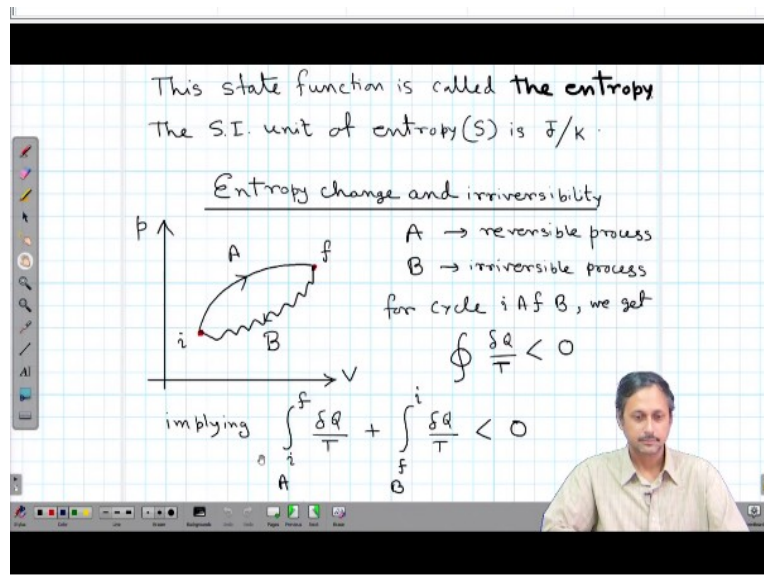 This state function is called the entropy
The S.I. unit of entropy (S) is J/K.
Entropy change and irriversibility
p
A
f
i
B
V
A → reversible process
B → irriversible process
for cycle i A f B, we get
∮ δQ/T < 0
implying ∫_i^f δQ/T + ∫_f^i δQ/T < 0
A B